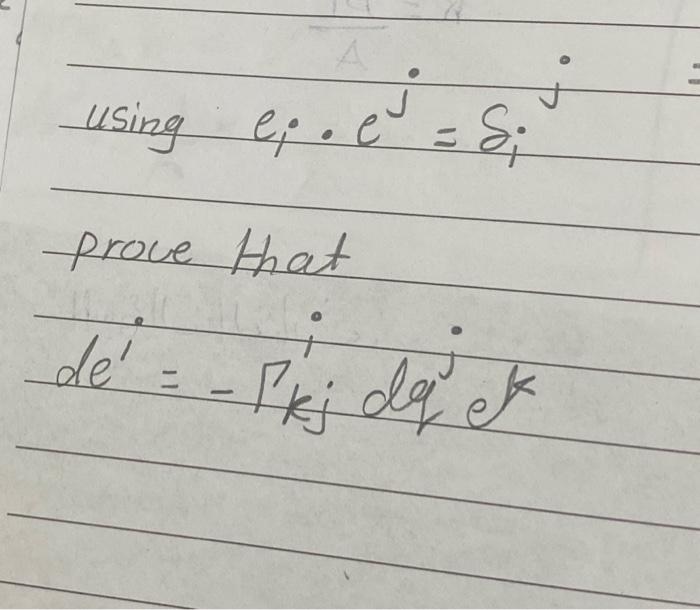 using e_i . e^j = δ_i^j
prove that
de^i = - Γ^i_kj dq^j e^k